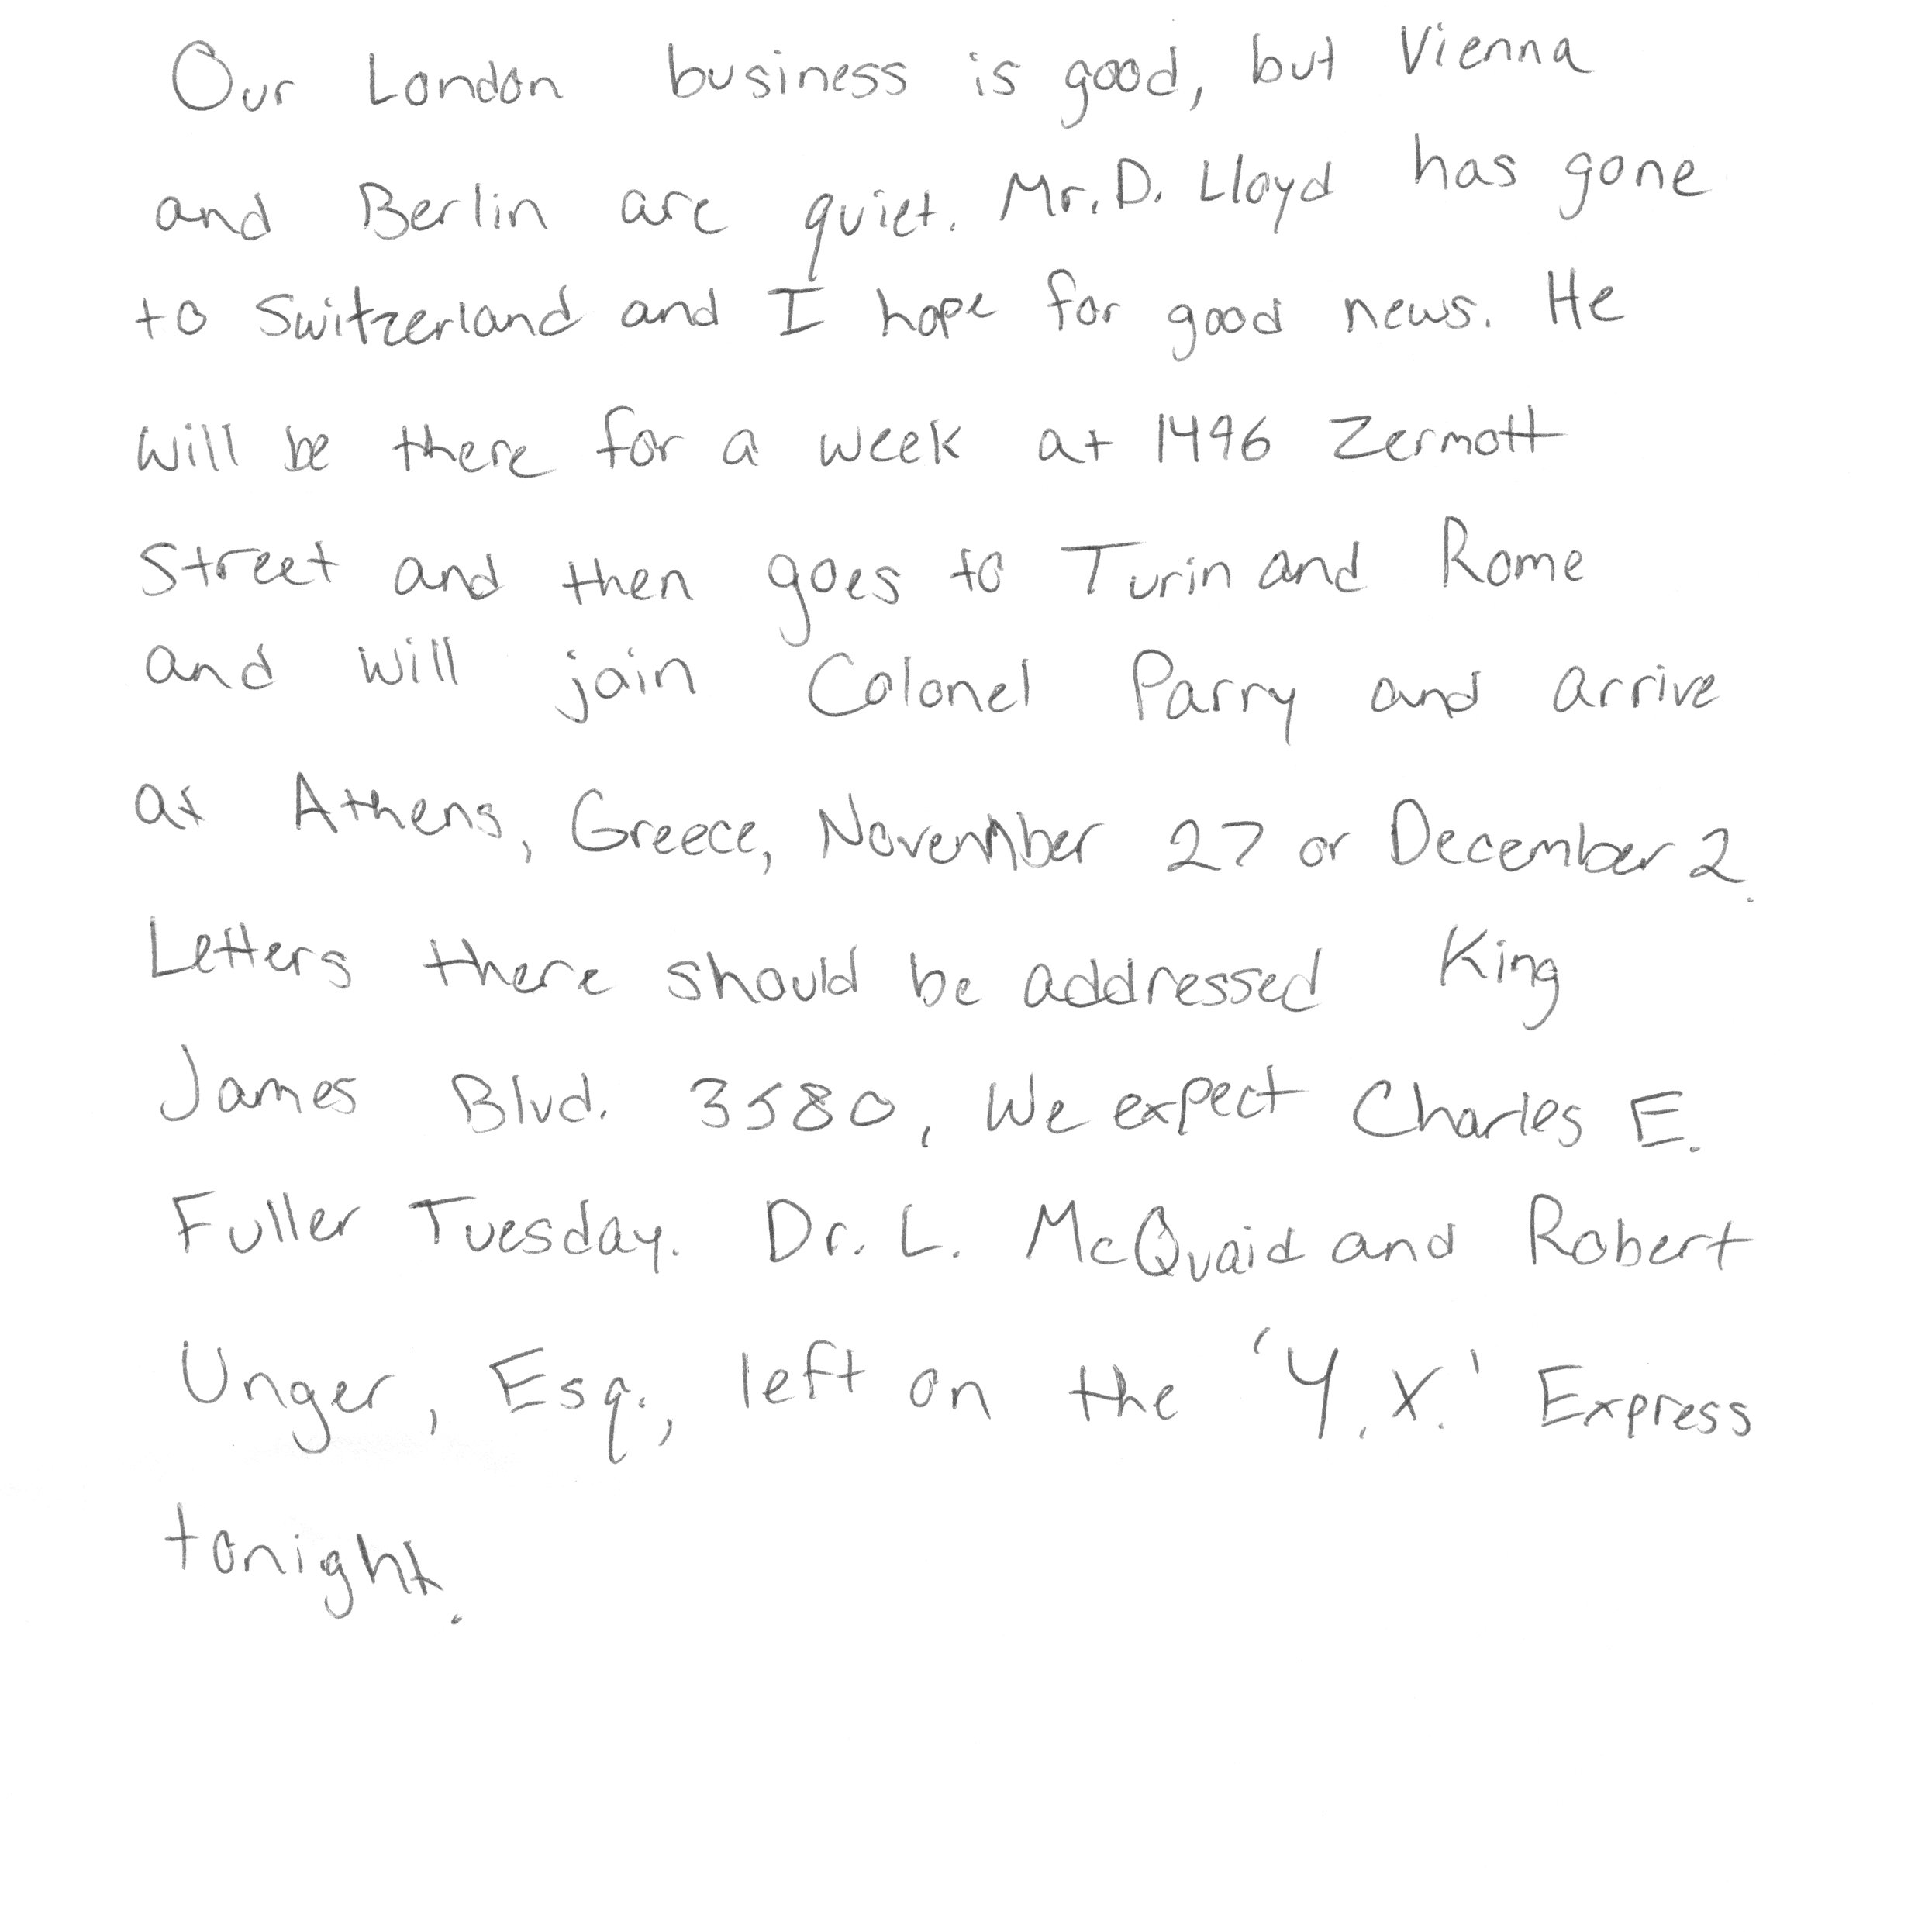 Our London business is good, but Vienna
and Berlin are quiet. Mr. D. Lloyd has gone
to Switzerland and I hope for good news. He
will be there for a week at 1496 Zermott
Street and then goes to Turin and Rome
and will join Colonel Parry and arrive
at Athens, Greece, November 27 or December 2.
Letters there should be addressed King
James Blvd. 3580. We expect Charles E.
Fuller Tuesday. Dr. L. McQuaid and Robert
Unger, Esq., left on the 'Y.X.' Express
tonight.